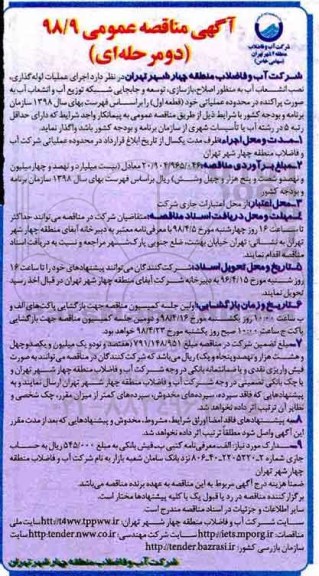 شرکت آب و فاضلاب
منطقه ۴ شهر تهران
(سهامی خاص)
آگهی مناقصه عمومی ۹۸/۹
(دو مرحله‌ای)
شرکت آب و فاضلاب منطقه چهار شهر تهران در نظر دارد اجرای عملیات لوله‌گذاری،
نصب انشعاب آب به منظور اصلاح، بازسازی، توسعه و جابجایی شبکه توزیع آب و انشعاب آب به
صورت پراکنده در محدوده عملیاتی خود (قطعه اول) را براساس فهرست بهای سال ۱۳۹۸ سازمان
برنامه و بودجه کشور با شرایط ذیل از طریق مناقصه عمومی به پیمانکار واجد شرایط که دارای حداقل
رتبه ۵ در رشته آب یا تأسیسات شهری از سازمان برنامه و بودجه کشور باشد واگذار نماید.
۱ـ مدت و محل اجراء: ظرف مدت یکسال از تاریخ ابلاغ قرارداد در محدوده عملیاتی شرکت آب
و فاضلاب منطقه چهار شهر تهران
۲ـ مبلغ برآوردی مناقصه: ۲۰/۹۰۴/۹۶۵/۰۴۶ معادل (بیست میلیارد و نهصد و چهار میلیون
و نهصد و شصت و پنج هزار و چهل و شش) ریال براساس فهرست بهای سال ۱۳۹۸ سازمان برنامه
و بودجه کشور
۳ـ محل اعتبار: از محل اعتبارات جاری شرکت
۴ـ مهلت و محل دریافت اسناد مناقصه: متقاضیان شرکت در مناقصه می‌توانند حداکثر
تا ساعت ۱۶ روز چهارشنبه مورخ ۹۸/۴/۵ با معرفی‌نامه معتبر به دبیرخانه شرکت آبفای منطقه چهار شهر
تهران به نشانی: تهران خیابان بهشت، ضلع جنوبی پارک شهر مراجعه و نسبت به دریافت اسناد
مناقصه اقدام نمایند.
۵ـ تاریخ و محل تحویل اسناد: شرکت‌کنندگان می‌توانند پیشنهادهای خود را تا ساعت ۱۶
روز شنبه مورخ ۹۸/۴/۱۵ به دبیرخانه شرکت آبفای منطقه چهار شهر تهران در قبال اخذ رسید
تحویل نمایند.
۶ـ تاریخ و زمان بازگشایی: اولین جلسه کمیسیون مناقصه جهت بازگشایی پاکت‌های الف و
ب ساعت ۱۰:۰۰ روز یکشنبه مورخ ۹۸/۴/۱۶ و دومین جلسه کمیسیون مناقصه جهت بازگشایی
پاکت ج ساعت ۱۰:۰۰ صبح روز یکشنبه مورخ ۹۸/۴/۲۳ خواهد بود.
۷ـ مبلغ تضمین شرکت در مناقصه مبلغ ۷۹۱/۱۴۸/۹۵۱ (هفتصد و نود و یک میلیون و یکصد و چهل
و هشت هزار و نهصد و پنجاه و یک) ریال می‌باشد که شرکت کنندگان در مناقصه می‌توانند به صورت
فیش واریزی نقدی و یا ضمانتنامه بانکی در وجه شرکت آب و فاضلاب منطقه چهار شهر تهران و
یا چک بانکی تضمینی در وجه شرکت آب و فاضلاب منطقه چهار شهر تهران ارسال نمایند و به
پیشنهادهایی که فاقد سپرده، سپرده‌های مخدوش، سپرده‌های کمتر از میزان مقرر، چک شخصی و
نظایر آن ترتیب اثر داده نخواهد شد.
۸ـ به پیشنهادهای فاقد امضا اوراق شرایط، مشروط، مخدوش و پیشنهادهایی که بعد از مدت مقرر
این آگهی واصل شود مطلقاً ترتیب اثر داده نخواهد شد.
۹ـ مدارک مورد نیاز: الف: معرفی‌نامه کتبی ب: فیش بانکی به مبلغ ۵۴۵/۰۰۰ ریال به حساب
نزد بانک سامان شعبه بازار به نام شرکت آب و فاضلاب منطقه
چهار شهر تهران
ضمناً هزینه درج آگهی مربوط به این مناقصه به عهده برنده مناقصه می‌باشد.
برگزارکننده مناقصه در رد یا قبول یک یا کلیه پیشنهادها مختار است.
سایر اطلاعات و جزئیات در اسناد مناقصه مندرج است.
سایت شرکت آب و فاضلاب منطقه چهار شهر تهران: http://t4ww.tppww.ir سایت ملی
مناقصات: http://iets.mporg.ir سایت شرکت مهندسی آب و فاضلاب کشور: http:tender.nww.ir سایت
سازمان بازرسی کشور: http://tender.bazrasi.ir
شرکت آب و فاضلاب منطقه چهار شهر تهران